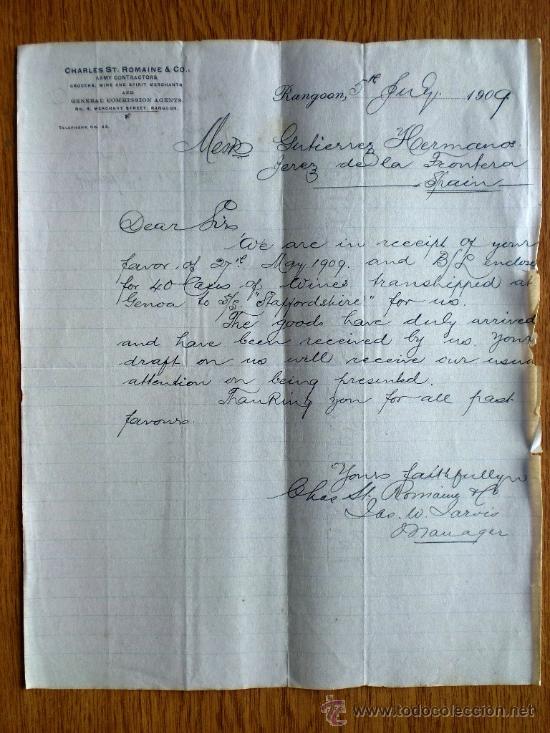 CHARLES ST. ROMAINE & CO.,
ARMY CONTRACTORS
GROCERS, WINE AND SPIRIT MERCHANTS
AND
GENERAL COMMISSION AGENTS.
No. 4, MERCHANT STREET, RANGOON.
TELEPHONE No. 43.
Rangoon, 5th July 1909
Messrs Gutierrez Hermanos
Jerez de la Frontera
Spain
Dear Sirs
We are in receipt of your
favor of 27th May 1909. and B/L enclose
for 40 Cases of Wines transhipped at
Genoa to S/S "Staffordshire" for us.
The goods have duly arrived
and have been received by us. Your
draft on us will receive our usual
attention on being presented.
Thanking you for all past
favours
Yours faithfully
Chas St. Romaine & Co
Jas. W. Jarvis
Manager
www.todocoleccion.net